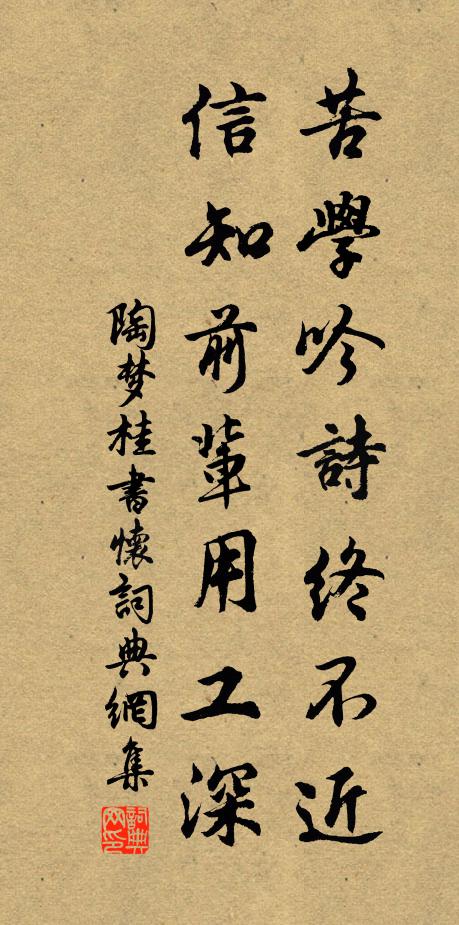 苦學吟詩終不近
信知前輩用工深
陶梦桂書懷詞典網集
詞典网印